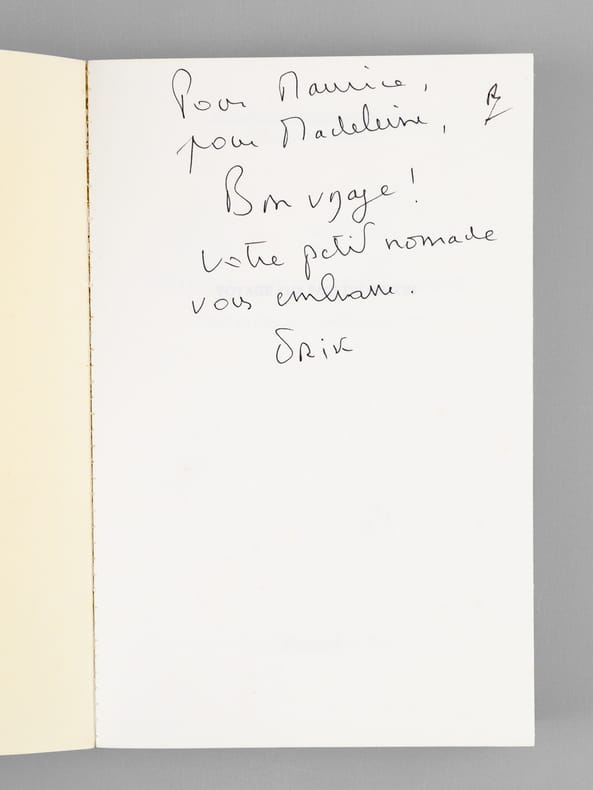 Pour Maurice,
pour Madeleine,
Bon voyage !
votre petit nomade
vous embrasse.
Erik